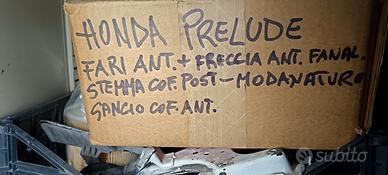 HONDA PRELUDE
FARI ANT. + FRECCIA ANT. FANAL.
STEMMA COF. POST - MODANATURE
GANCIO COF. ANT.
subito